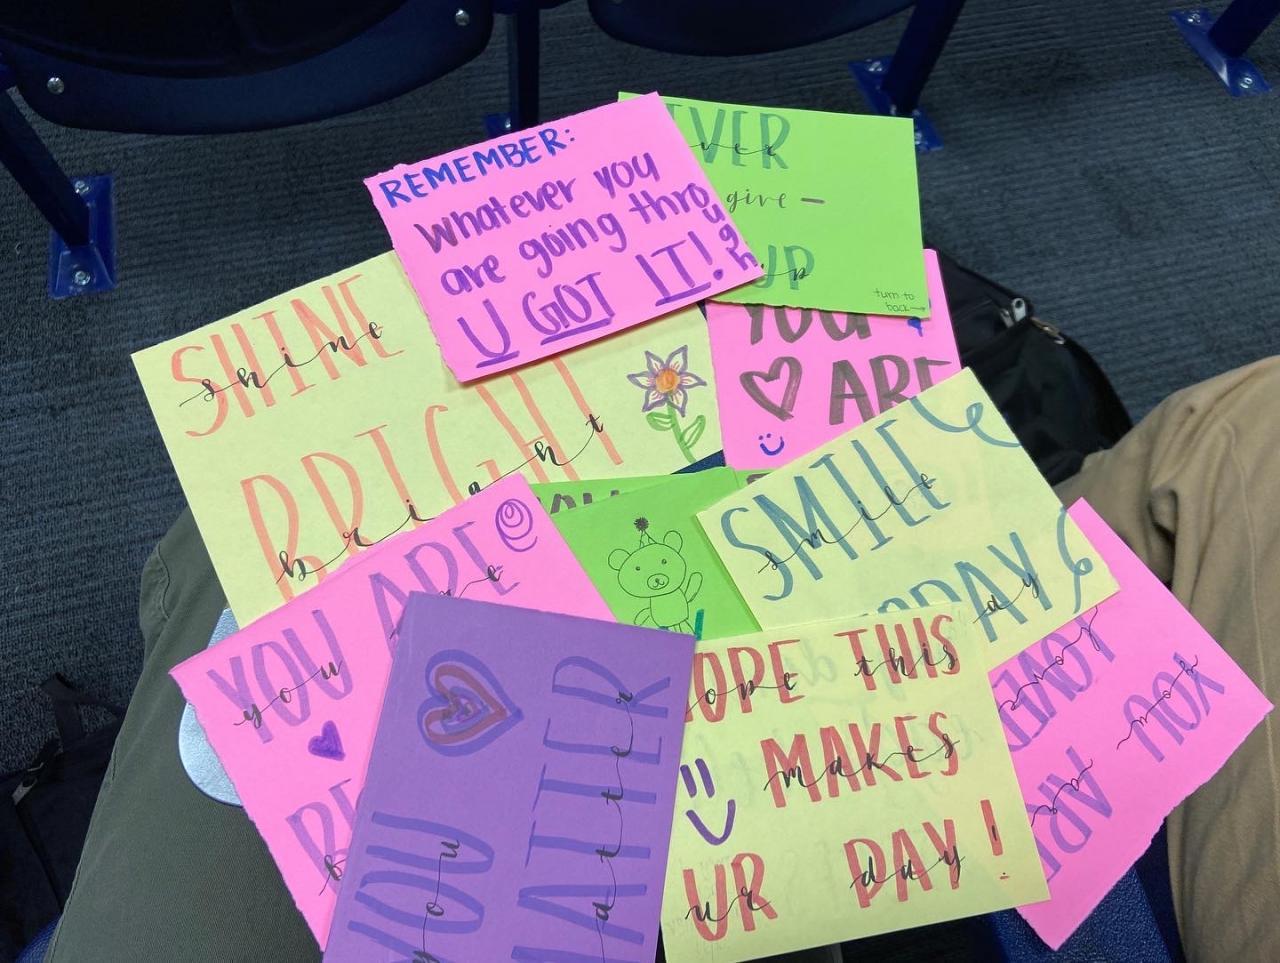 REMEMBER:
Whatever you
are going through
U GOT IT!
VER
ver
give —
UP
up
turn to
back→
SHINE
shine
BRIGHT
bright
YOU
ARE
SMILE
smile
TODAY
day
YOU ARE
you are
BE
b
YOU
you
MATTER
matter
OPE THIS
ope this
MAKES
makes
UR DAY!
ur day
YOU
you
ARE
are
LOVED
loved